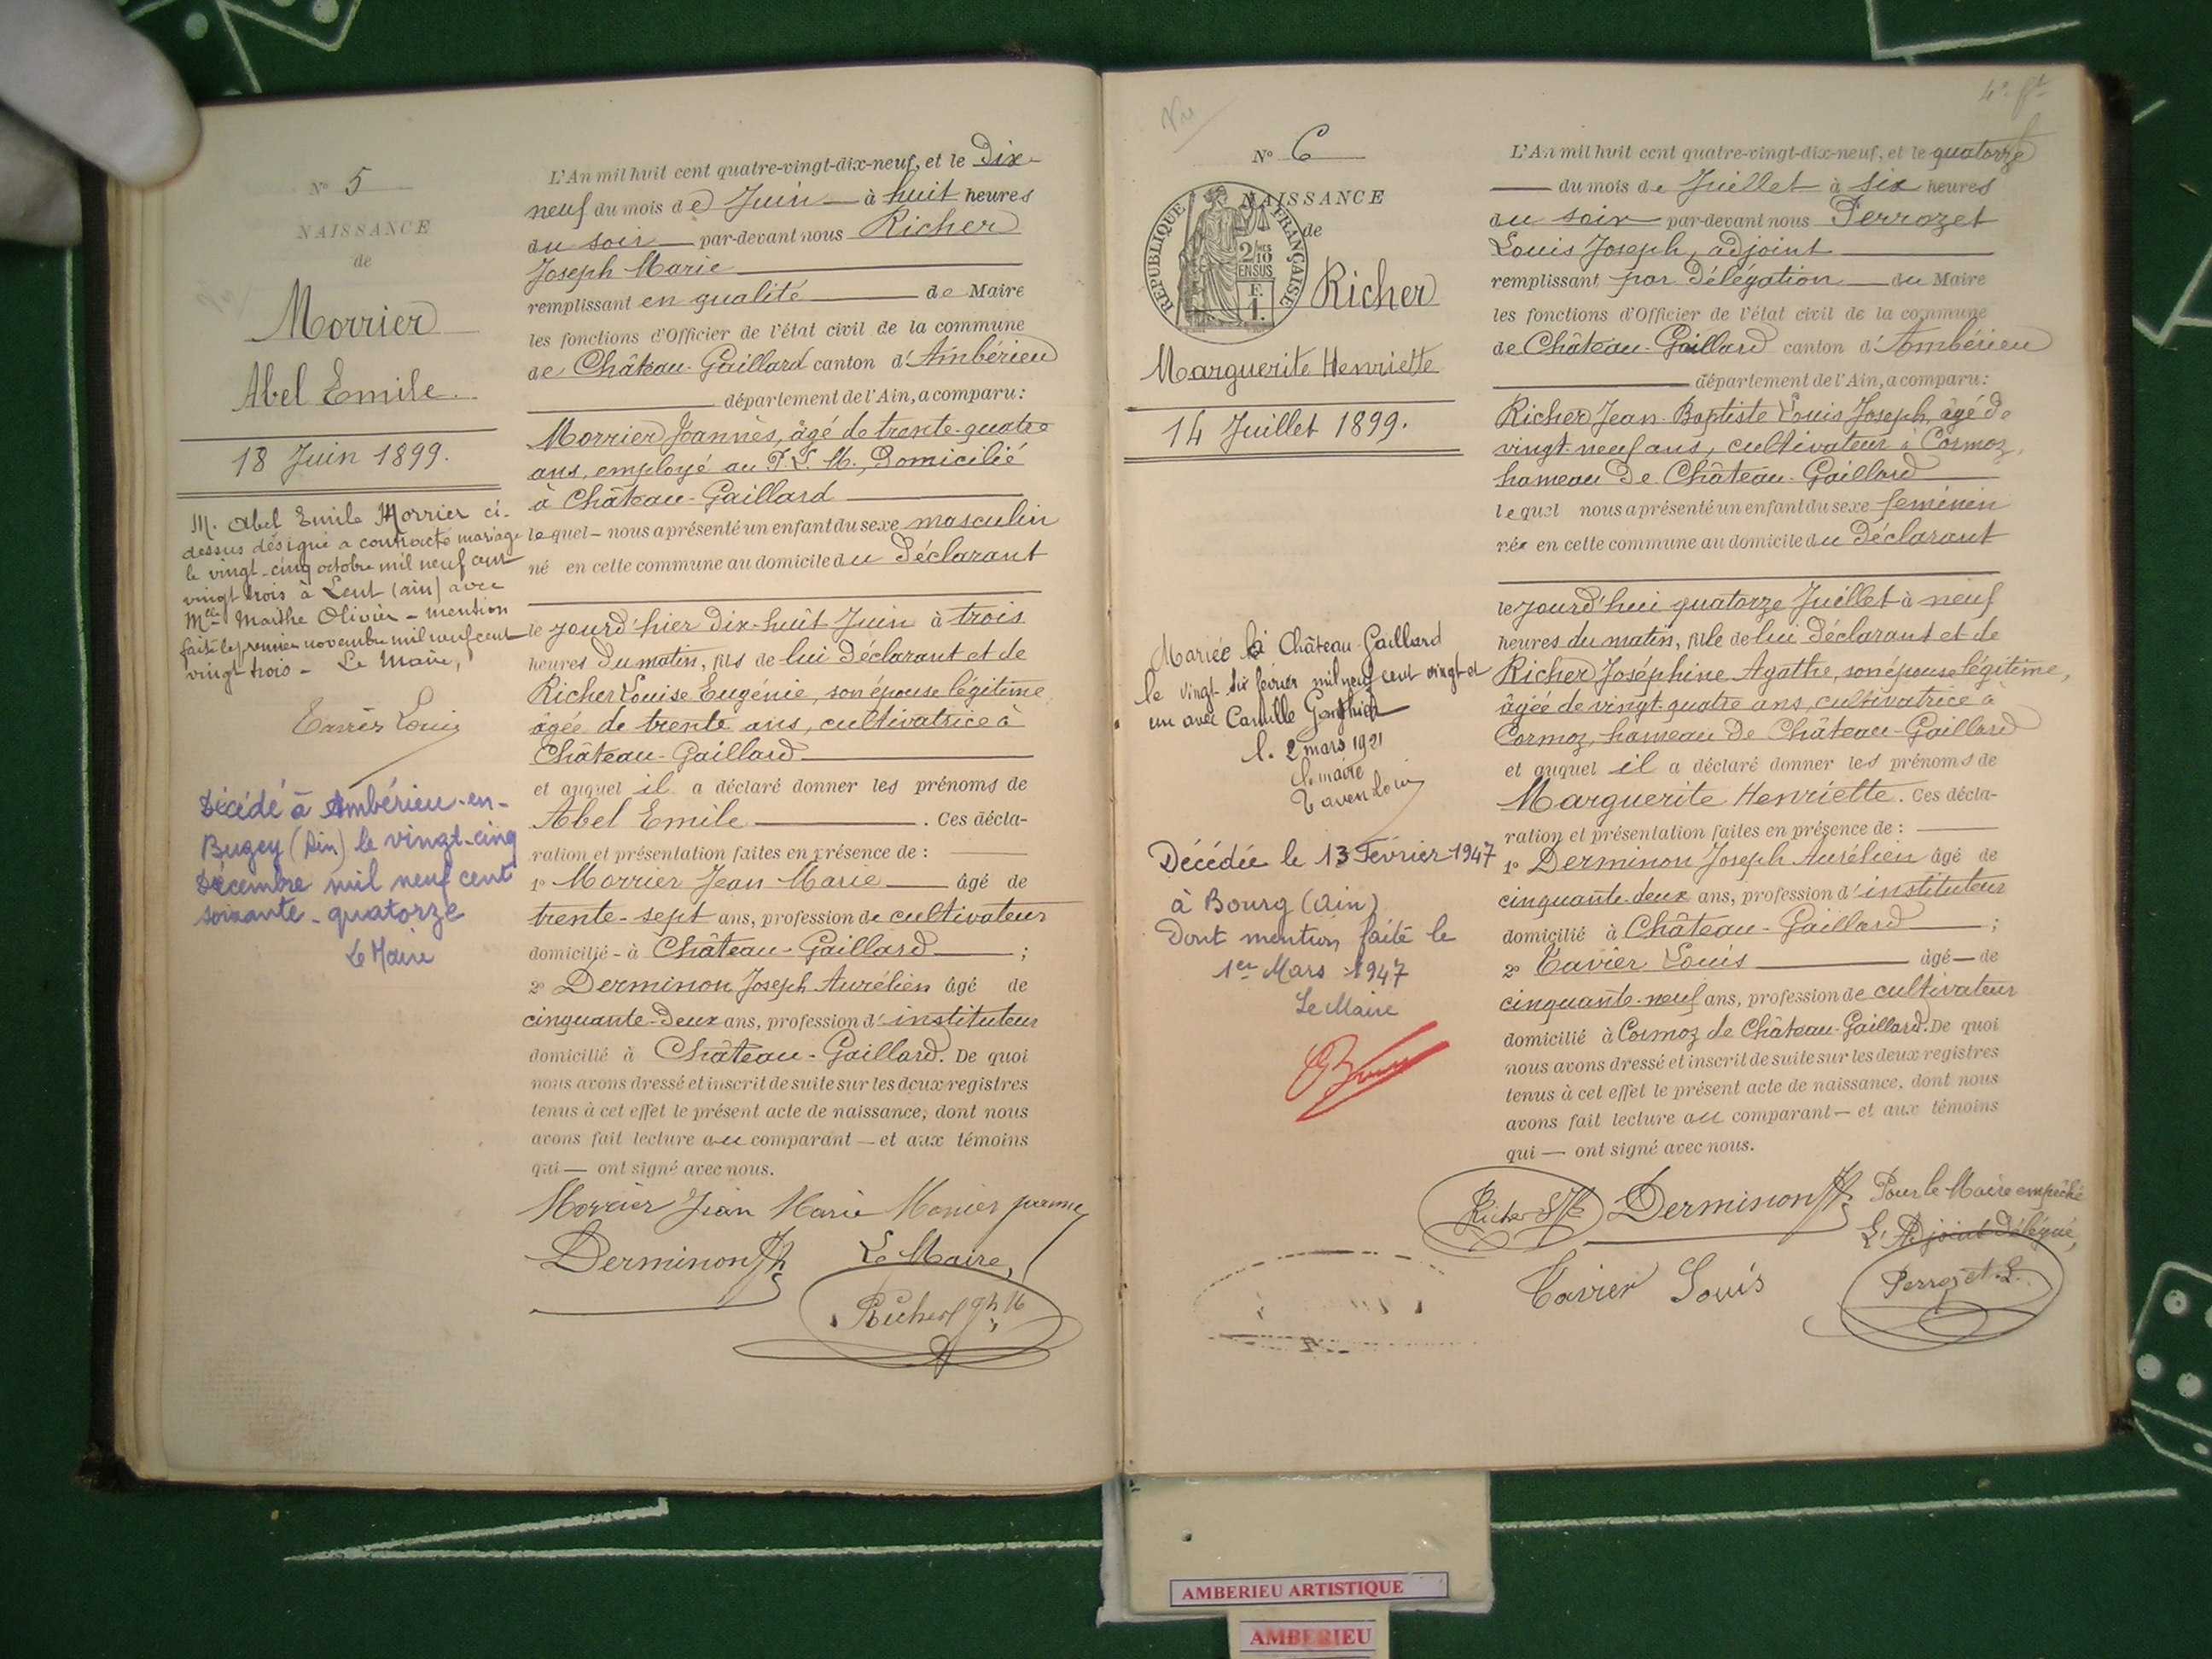 N° 5
NAISSANCE
de
Morrier
Abel Emile.
18 Juin 1899.
M. Abel Emile Morrier ci-
dessus désigné a contracté mariage
le vingt-cinq octobre mil neuf cent
vingt trois à Lent (ain) avec
Mlle Marthe Olivier - mention
faite le premier novembre mil neuf cent
vingt trois - Le Maire,
Tavier Louis
Décédé à Ambérieu-en-
Bugey (Ain) le vingt-cinq
Décembre mil neuf cent
soixante-quatorze
Le Maire
L'An mil huit cent quatre-vingt-dix-neuf, et le Dix-
neuf du mois de Juin à huit heures
du soir par-devant nous Richer
Joseph Marie
remplissant en qualité de Maire
les fonctions d'Officier de l'état civil de la commune
de Château-Gaillard canton d'Ambérieu
département de l'Ain, a comparu:
Morrier Joannès, âgé de trente-quatre
ans, employé au P. L. M., Domicilié
à Château-Gaillard
lequel - nous a présenté un enfant du sexe masculin
né en cette commune au domicile du Déclarant
le jourd'hier Dix-huit Juin à trois
heures Du matin, fils de lui Déclarant et de
Richer Louise Eugénie, son épouse légitime
âgée de trente ans, cultivatrice à
Château-Gaillard
et auquel il a déclaré donner les prénoms de
Abel Emile . Ces décla-
ration et présentation faites en présence de :
1° Morrier Jean Marie âgé de
trente-sept ans, profession de cultivateur
domicilié - à Château-Gaillard ;
2° Derminon Joseph Aurélien âgé de
cinquante-Deux ans, profession d'instituteur
domicilié à Château-Gaillard. De quoi
nous avons dressé et inscrit de suite sur les deux registres
tenus à cet effet le présent acte de naissance, dont nous
avons fait lecture au comparant - et aux témoins
qui - ont signé avec nous.
Morrier Jean Marie Morrier
Derminon Le Maire,
Richer
4e
N° 6
NAISSANCE
de
REPUBLIQUE FRANÇAISE
2/10 EN SUS
F. 1.
Richer
Marguerite Henriette
14 Juillet 1899.
Mariée à Château-Gaillard
le vingt-six février mil neuf cent vingt et
un avec Camille
l. 2 mars 1921
l. maire
Tavier Louis
Décédée le 13 Février 1947
à Bourg (Ain)
Dont mention faite le
1er Mars 1947
Le Maire
L'An mil huit cent quatre-vingt-dix-neuf, et le quatorze
du mois de Juillet à six heures
du soir par-devant nous Perrozet
Louis Joseph, adjoint
remplissant par Délégation du Maire
les fonctions d'Officier de l'état civil de la commune
de Château-Gaillard canton d'Ambérieu
département de l'Ain, a comparu:
Richer Jean-Baptiste Louis Joseph, âgé de
vingt-neuf ans, cultivateur à Cormoz,
hameau De Château-Gaillard
lequel nous a présenté un enfant du sexe féminin
née en cette commune au domicile du Déclarant
le jourd'hui quatorze Juillet à neuf
heures du matin, fille de lui Déclarant et de
Richer Joséphine Agathe, son épouse légitime,
âgée de vingt-quatre ans, cultivatrice à
Cormoz, hameau De Château-Gaillard
et auquel il a déclaré donner les prénoms de
Marguerite Henriette. Ces décla-
ration et présentation faites en présence de :
1° Derminon Joseph Aurélien âgé de
cinquante-deux ans, profession d'instituteur
domicilié à Château-Gaillard ;
2° Tavier Louis âgé - de
cinquante-neuf ans, profession de cultivateur
domicilié à Cormoz de Château-Gaillard. De quoi
nous avons dressé et inscrit de suite sur les deux registres
tenus à cet effet le présent acte de naissance, dont nous
avons fait lecture au comparant - et aux témoins
qui - ont signé avec nous.
Richer Derminon Pour le Maire empêché
L'Adjoint Délégué,
Tavier Louis Perrozet L.
AMBERIEU ARTISTIQUE
AMBERIEU